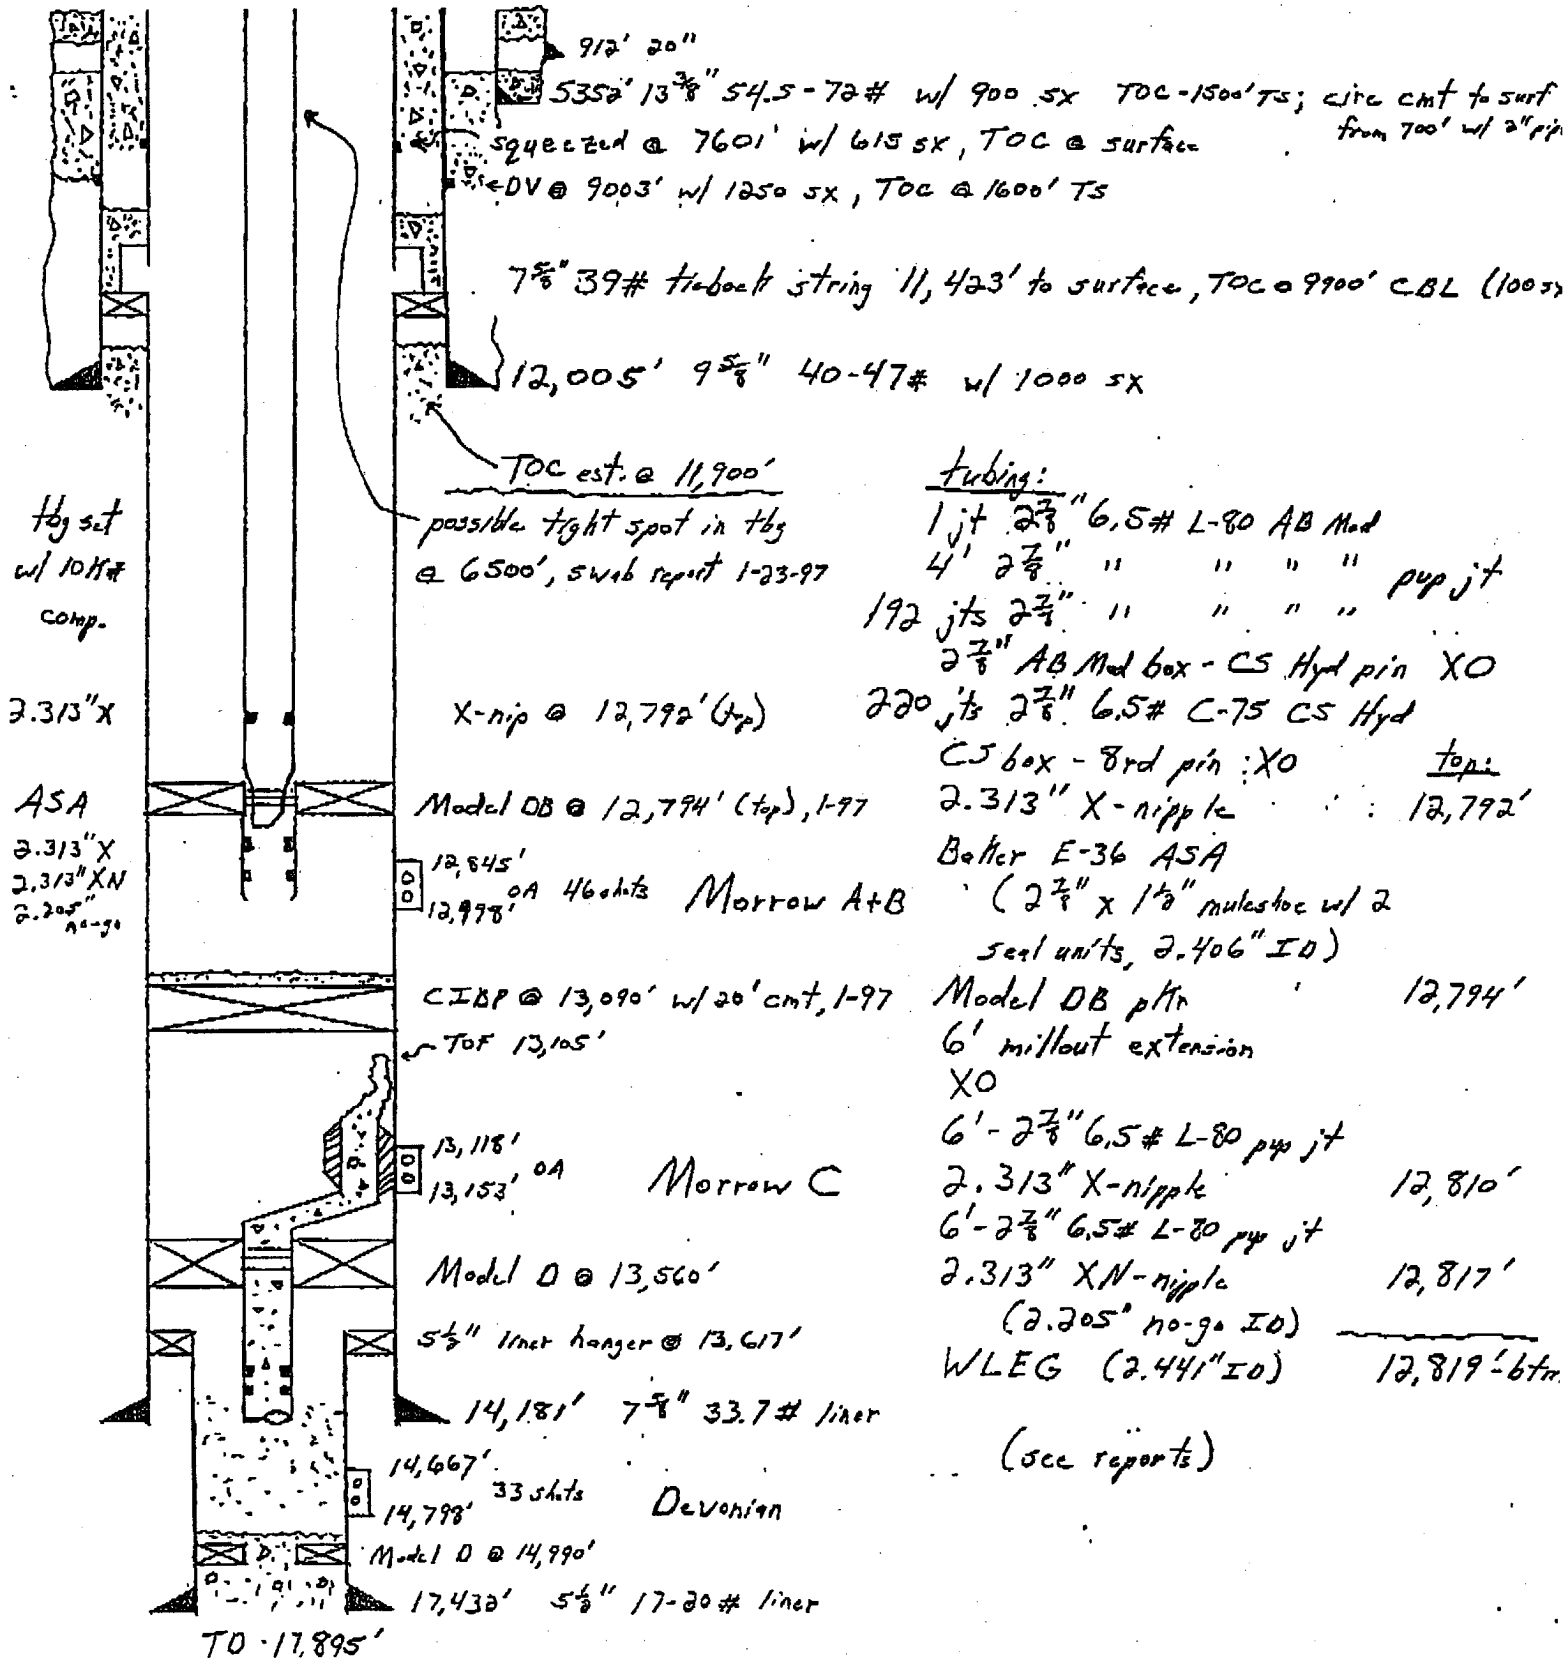 912' 20"
5352' 13 3/8" 54.5-72# w/ 900 sx TOC-1500' TS; circ cmt to surf
from 700' w/ 2" pip
squeezed @ 7601' w/ 615 sx, TOC @ surface
DV @ 9003' w/ 1250 sx, TOC @ 1600' TS
7 5/8" 39# tieback string 11,423' to surface, TOC @ 9900' CBL (100 sx
12,005' 9 5/8" 40-47# w/ 1000 sx
TOC est. @ 11,900'
possible tight spot in tbg
@ 6500', swab report 1-23-97
tbg set
w/ 10K#
comp.
2.313" X
X-nip @ 12,792' (top)
ASA
Model DB @ 12,794' (top), 1-97
2.313" X
2.313" XN
2.205"
no-go
12,845'
12,978' OA 46 shots Morrow A+B
CIBP @ 13,090' w/ 20' cmt, 1-97
TOF 13,105'
13,118'
13,153' OA Morrow C
Model D @ 13,560'
5 1/2" liner hanger @ 13,617'
14,181' 7 5/8" 33.7# liner
14,667'
14,798' 33 shots Devonian
Model D @ 14,990'
17,432' 5 1/2" 17-20# liner
TD - 17,895'
tubing:
1 jt 2 7/8" 6.5# L-80 AB Mod
4' 2 7/8" " " " " pup jt
192 jts 2 7/8" " " " "
2 7/8" AB Mod box - CS Hyd pin XO
220 jts 2 7/8" 6.5# C-75 CS Hyd
CS box - 8rd pin XO top:
2.313" X-nipple 12,792'
Baker E-36 ASA
(2 7/8" x 1 1/2" muleshoe w/ 2
seal units, 2.406" ID)
Model DB pkr 12,794'
6' millout extension
XO
6' - 2 7/8" 6.5# L-80 pup jt
2.313" X-nipple 12,810'
6' - 2 7/8" 6.5# L-80 pup jt
2.313" XN-nipple 12,817'
(2.205" no-go ID)
WLEG (2.441" ID) 12,819'-btm.
(see reports)